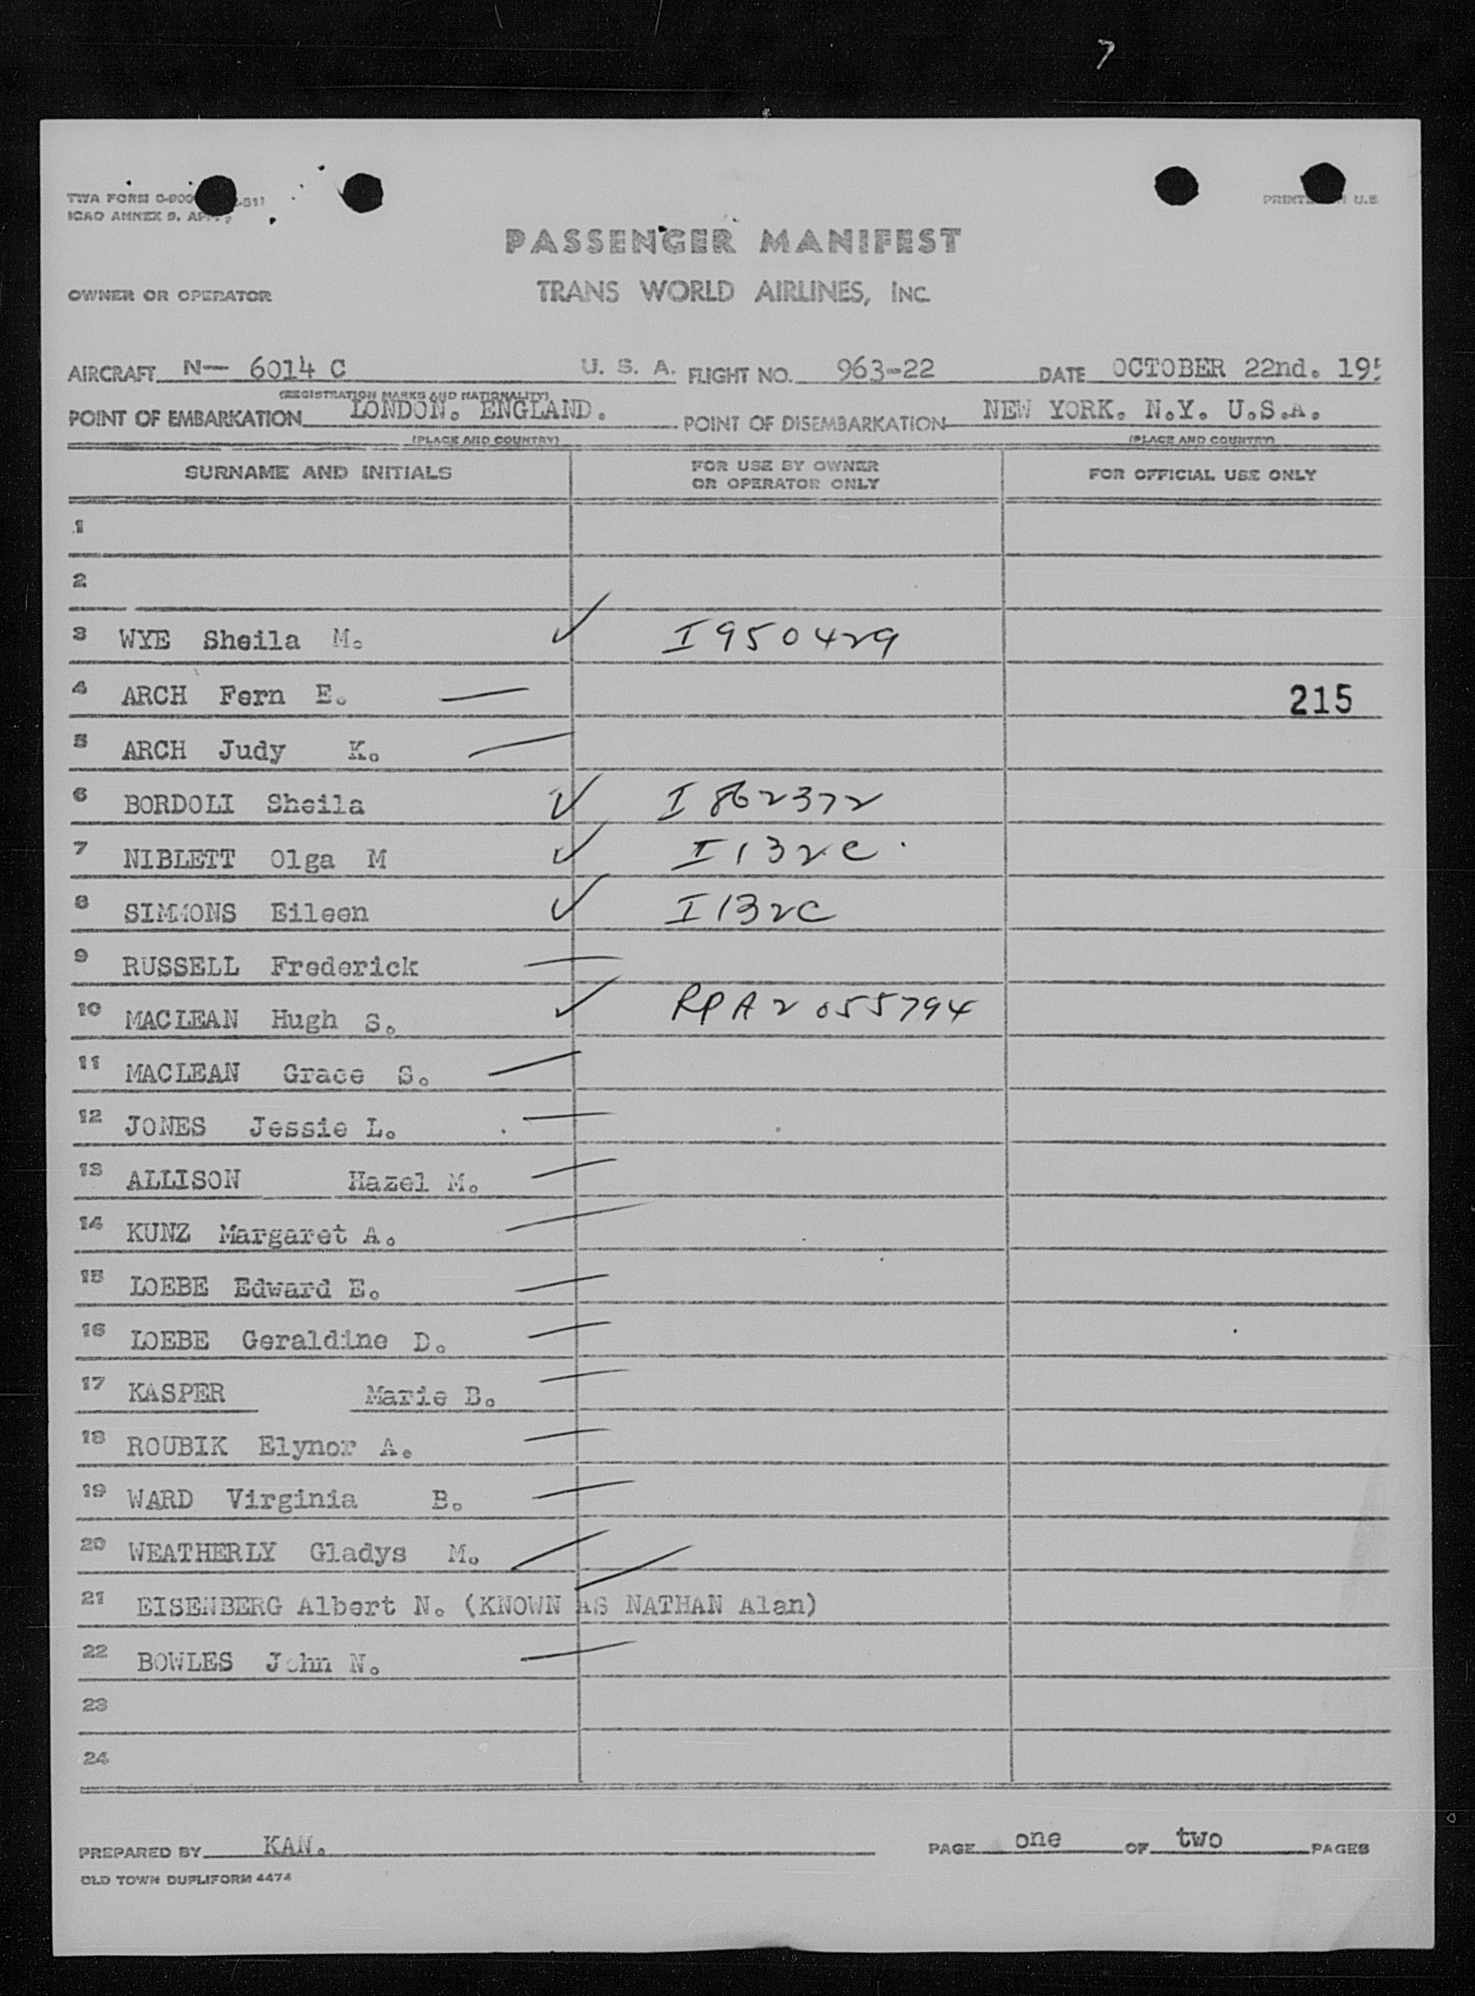 7
TWA FORM
ICAO ANNEX 9.
PRINTED IN U.S
PASSENGER MANIFEST
OWNER OR OPERATOR TRANS WORLD AIRLINES, INC.
AIRCRAFT N— 6014 C U. S. A. FLIGHT NO. 963-22 DATE OCTOBER 22nd. 195
(REGISTRATION MARKS AND NATIONALITY)
POINT OF EMBARKATION LONDON. ENGLAND. POINT OF DISEMBARKATION NEW YORK. N.Y. U.S.A.
(PLACE AND COUNTRY) (PLACE AND COUNTRY)
SURNAME AND INITIALS FOR USE BY OWNER OR OPERATOR ONLY FOR OFFICIAL USE ONLY
1
2
3 WYE Sheila M. ✓ I950429
4 ARCH Fern E. — 215
5 ARCH Judy K. —
6 BORDOLI Sheila ✓ I862372
7 NIBLETT Olga M ✓ I132C.
8 SIMMONS Eileen ✓ I132C
9 RUSSELL Frederick —
10 MACLEAN Hugh S. ✓ RPA2055794
11 MACLEAN Grace S. —
12 JONES Jessie L. —
13 ALLISON Hazel M. —
14 KUNZ Margaret A. —
15 LOEBE Edward E. —
16 LOEBE Geraldine D. —
17 KASPER Marie B. —
18 ROUBIK Elynor A. —
19 WARD Virginia B. —
20 WEATHERLY Gladys M. —
21 EISENBERG Albert N. (KNOWN AS NATHAN Alan)
22 BOWLES John N. —
23
24
PREPARED BY KAN. PAGE one OF two PAGES
OLD TOWN DUPLIFORM 4474